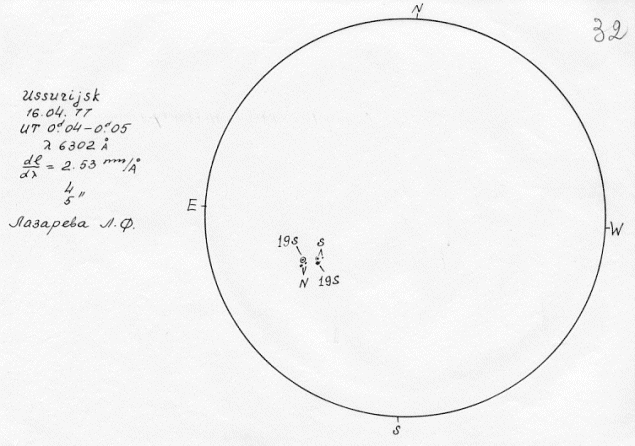 N
32
Ussurijsk
16.04.77
UT 0ᵈ.04-0ᵈ.05
λ 6302 Å
dℓ/dλ = 2.53 mm/Å
4
5"
Лазарева Л.Ф.
E
W
19S S
N 19S
S